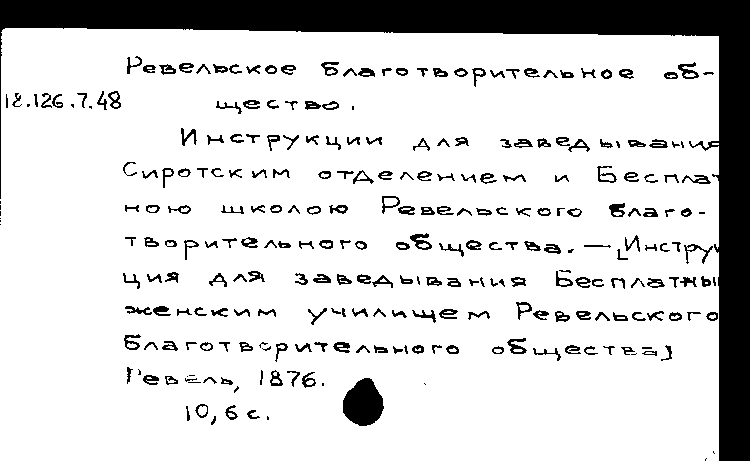 Ревельское благотворительное об-
18.126.7.48 щество.
Инструкции для заведывания
Сиротским отделением и Бесплат
ною школою Ревельского благо-
творительного общества. — [Инструк
ция для заведывания Бесплатны
женским училищем Ревельского
благотворительного общества]
Ревель, 1876.
10, 6 с.